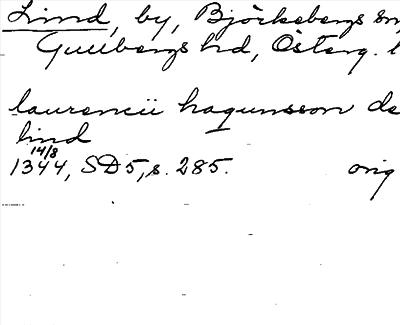 Lind, by, Björkebergs sn,
Gullbergs hd, Österg. l
laurencii hagunsson de
lind
14/8
1344, SD5, s. 285. orig